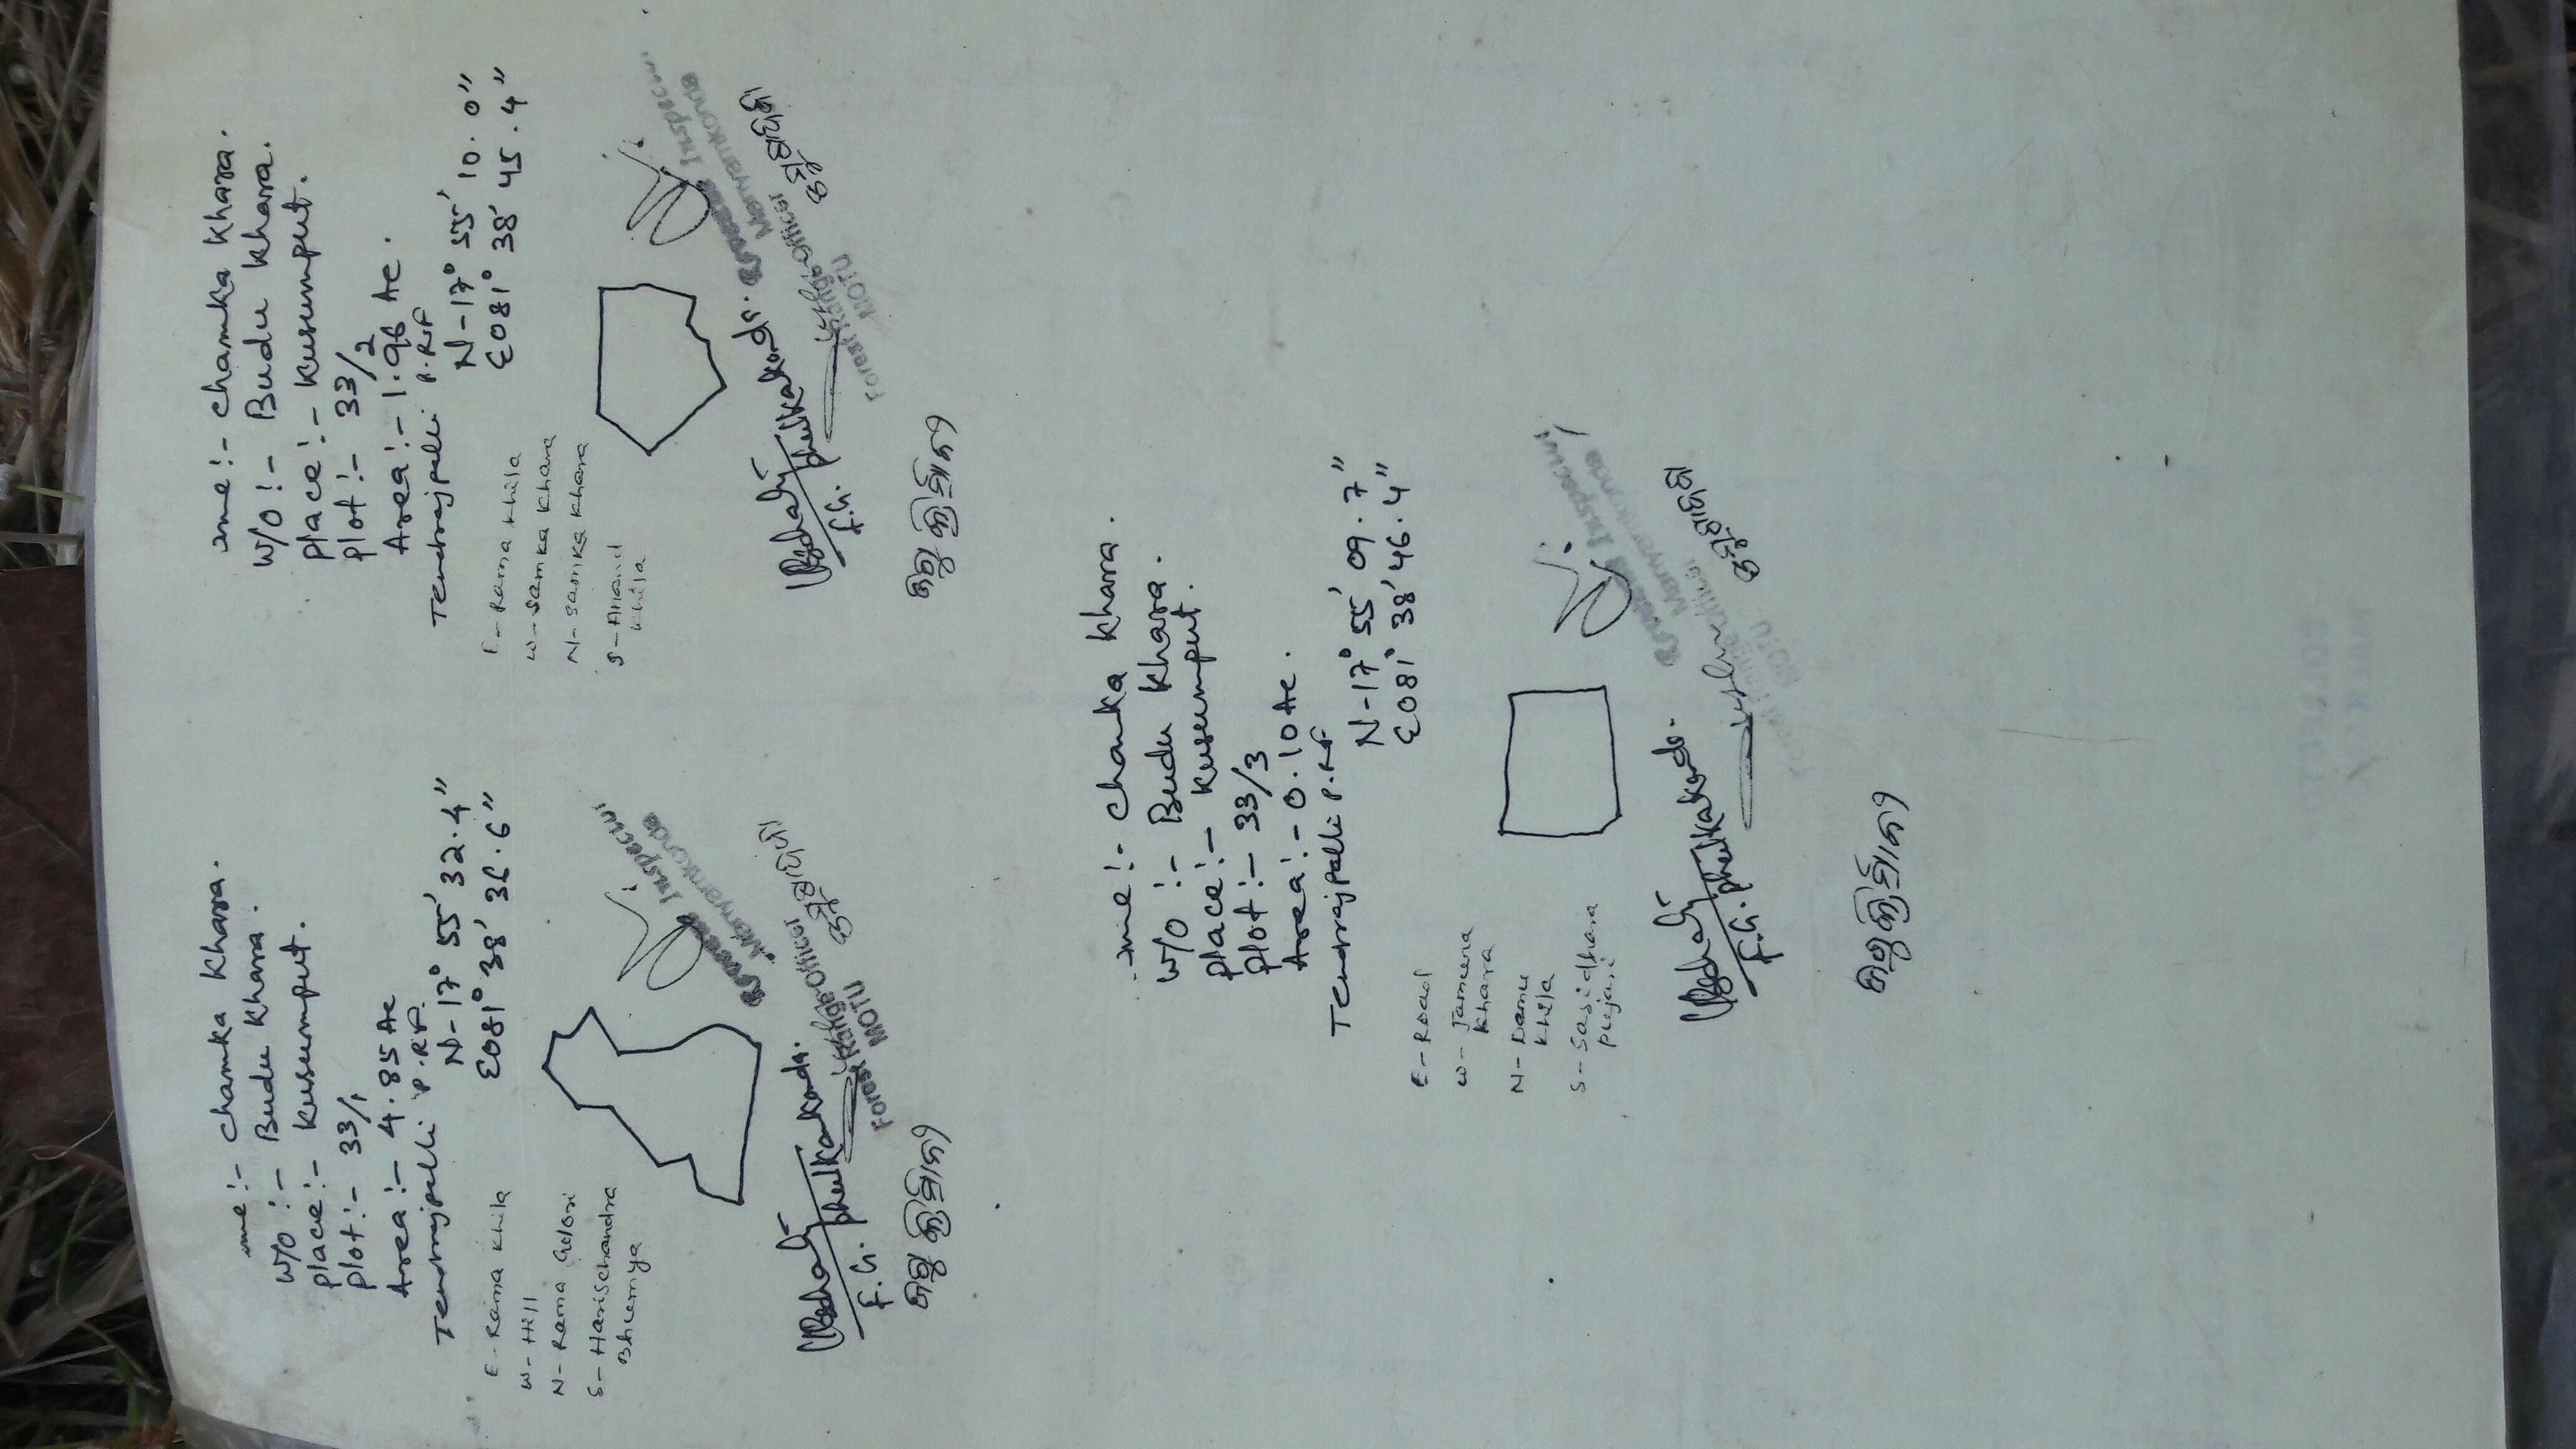 Name :- Chamka Khara.
W/O :- Budu Khara.
Place :- Kusumput.
Plot :- 33/1
Area :- 4.85 Ac
Tendrajpalli P.R.F.
N-17° 55' 32.4"
E081° 38' 36.6"
E - Rama Khila
W - Hill
N - Rama Golori
S - Harischandra
Bhumya
Inspector
F.G. Phulkakonda.
Forest Range Officer
MOTU
Name :- Chamka Khara.
W/O :- Budu Khara.
Place :- Kusumput.
Plot :- 33/2
Area :- 1.96 Ac.
Tendrajpalli P.R.F
N-17° 55' 10.0"
E081° 38' 45.4"
E - Rama Khila
W - Samka Khara
N - Samka Khara
S - Anand
Khila
Inspector
F.G. Phulkakonda.
Forest Range Officer
MOTU
Name :- Chamka Khara.
W/O :- Budu Khara.
Place :- Kusumput.
Plot :- 33/3
Area :- 0.10 Ac.
Tendrajpalli P.R.F
N-17° 55' 09.7"
E081° 38' 46.4"
E - Road
W - Jamuna
Khara
N - Damu
Khila
S - Sasidhara
Pujari
Inspector
F.G. Phulkakonda.
MOTU